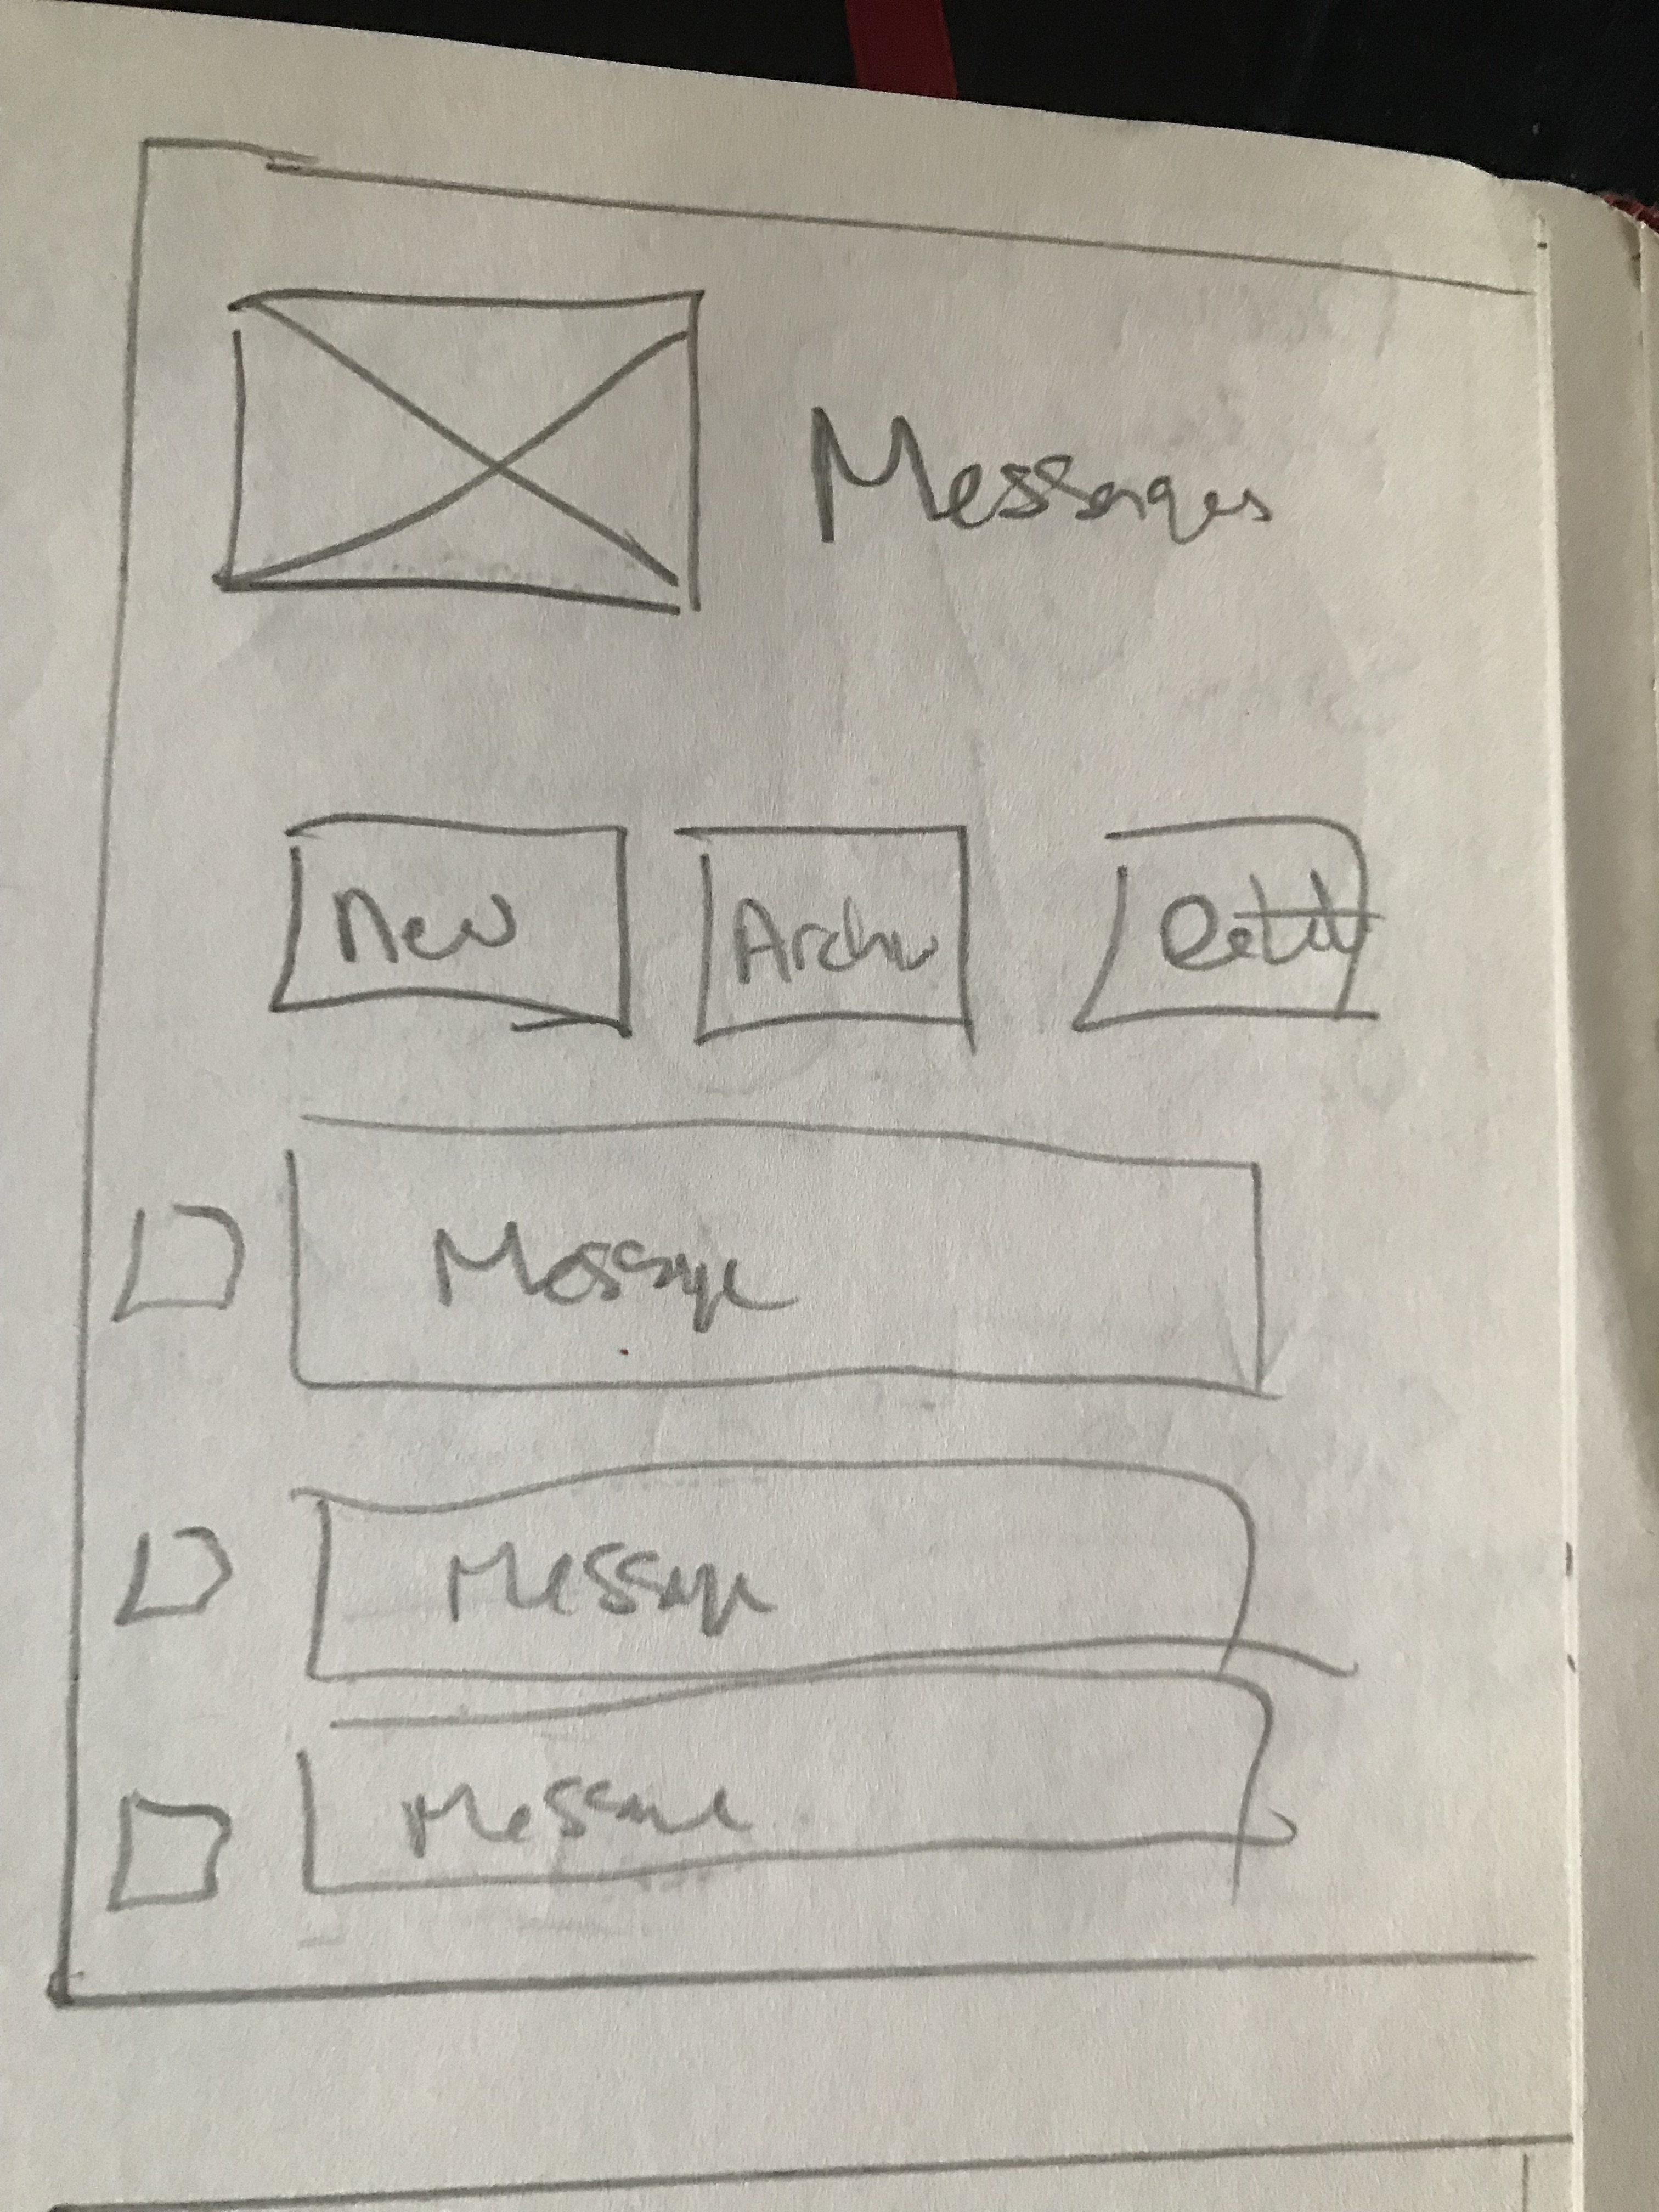 Messages
New Archiv
Message
Message
Message